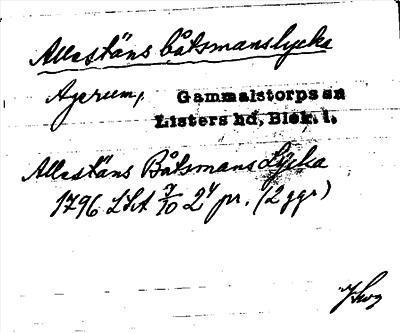 Allestäns båtsmanslycka
Agerum,
Gammalstorps sn
Listers hd, Blek. l.
Allestäns Båtsmans Lycka
1796 LSA 7/10 2⁴ pr. (2 ggr)